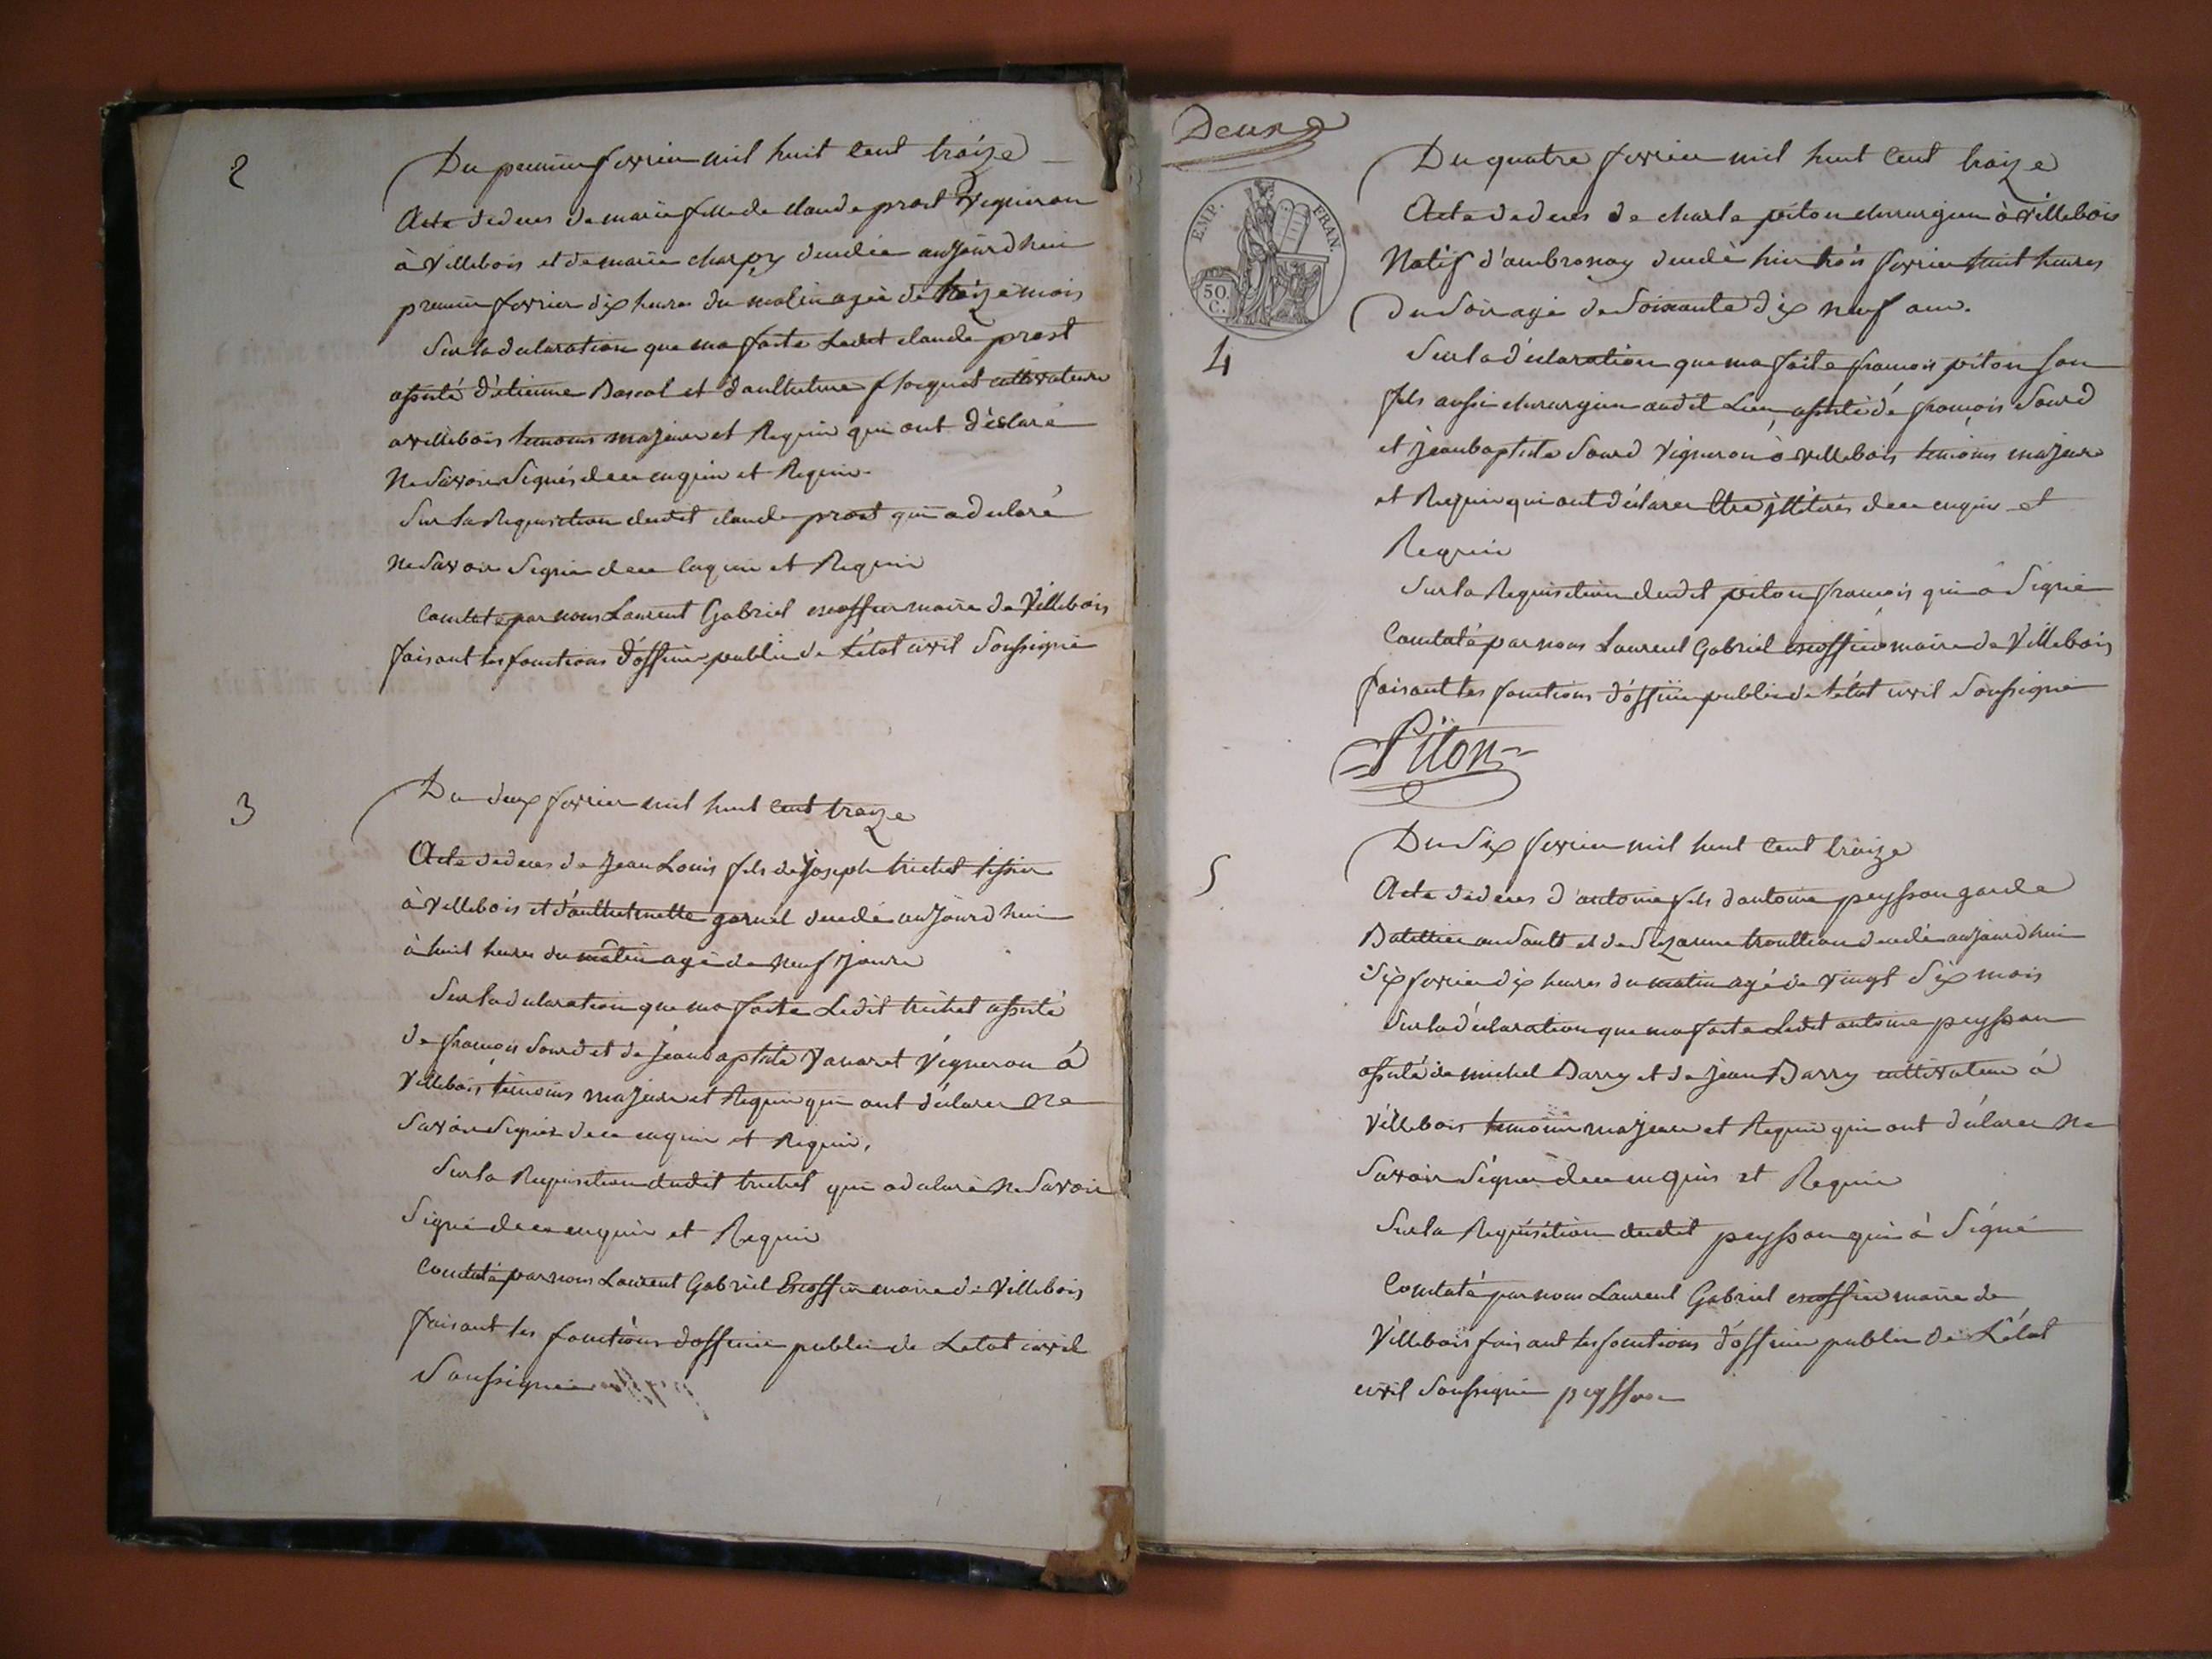 2
Du premier fevrier mil huit cent traize
Acte de deces de marie fille de claude prost Vigneron
à Villebois et de marie charpy decedée aujourd'hui
premier fevrier dix heures du matin agée de traize mois
Sur la declaration que ma faite Ledit claude prost
assisté d'étienne Bascol et d'anthelme cultivateurs
a villebois temoins majeurs et Requis qui ont déclaré
Ne Savoir Signés de ce enquis et Requis.
Sur la Requisition dudit claude prost qui a declaré
ne Savoir Signé de ce enquis et Requis
Constaté par nous Laurent Gabriel escoffier maire de Villebois
faisant les fonctions d'officier public de l'état civil Soussigné
3
Du deux fevrier mil huit cent traize
Acte de deces de Jean Louis fils de Joseph trichet tissier
à Villebois et d'anthelmette decedé aujourd'hui
à huit heures du matin agé de neuf Jours
Sur la declaration que ma faite Ledit trichet assisté
de françois Sourd et de Jean baptiste Vanaret Vigneron à
Villebois, temoins majeurs et Requis qui ont déclarer Ne
Savoir Signer de ce enquis et Requis,
Sur la Requisition dudit trichet qui a declaré Ne Savoir
Signé de ce enquis et Requis
Constaté par nous Laurent Gabriel Escoffier maire de Villebois
faisant les fonctions d'officier public de Letat civil
Soussigné
Deux
EMP. FRAN.
50. C.
4
Du quatre fevrier mil huit cent traize
Acte de deces de charle piton chirurgien à Villebois
Natif d'ambronay decedé hier trois fevrier huit heures
du Soir agé de Soixante dix neuf ans.
Sur la déclaration que ma faite françois piton Son
fils aussi chirurgien audit Lieu, assisté de françois Sourd
et Jean baptiste Sourd Vigneron à Villebois temoins majeurs
et Requis qui ont déclarer Etre illitérés de ce enquis et
Requis
Sur la Requisition dudit piton françois qui a Signé
Constaté par nous Laurent Gabriel escoffier maire de Villebois
faisant les fonctions d'officier public de l'état civil Soussigné
Piton
5
Du Six fevrier mil huit cent traize
Acte de deces d'antoine fils d'antoine peysson garde
Batellier au Sault et de Suzanne decedé aujourd'hui
Six fevrier dix heures du matin agé de vingt Six mois
Sur la déclaration que ma faite Ledit antoine peysson
assisté de michel Barry et de Jean Barry cultivateur à
Villebois temoins majeurs et Requis qui ont déclarer Ne
Savoir Signer de ce enquis et Requis
Sur la Requisition dudit peysson qui à Signé
Constaté par nous Laurent Gabriel escoffier maire de
Villebois faisant les fonctions d'officier public de L'état
civil Soussigné peysson